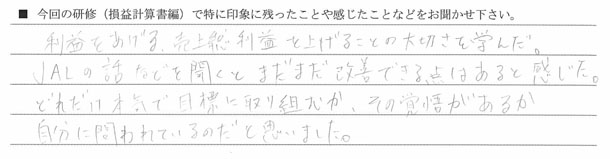 ■ 今回の研修（損益計算書編）で特に印象に残ったことや感じたことなどをお聞かせ下さい。
利益をあげる、売上総利益を上げることの大切さを学んだ。
JALの話などを聞くとまだまだ改善できる点はあると感じた。
どれだけ本気で目標に取り組むか、その覚悟があるか
自分に問われているのだと思いました。